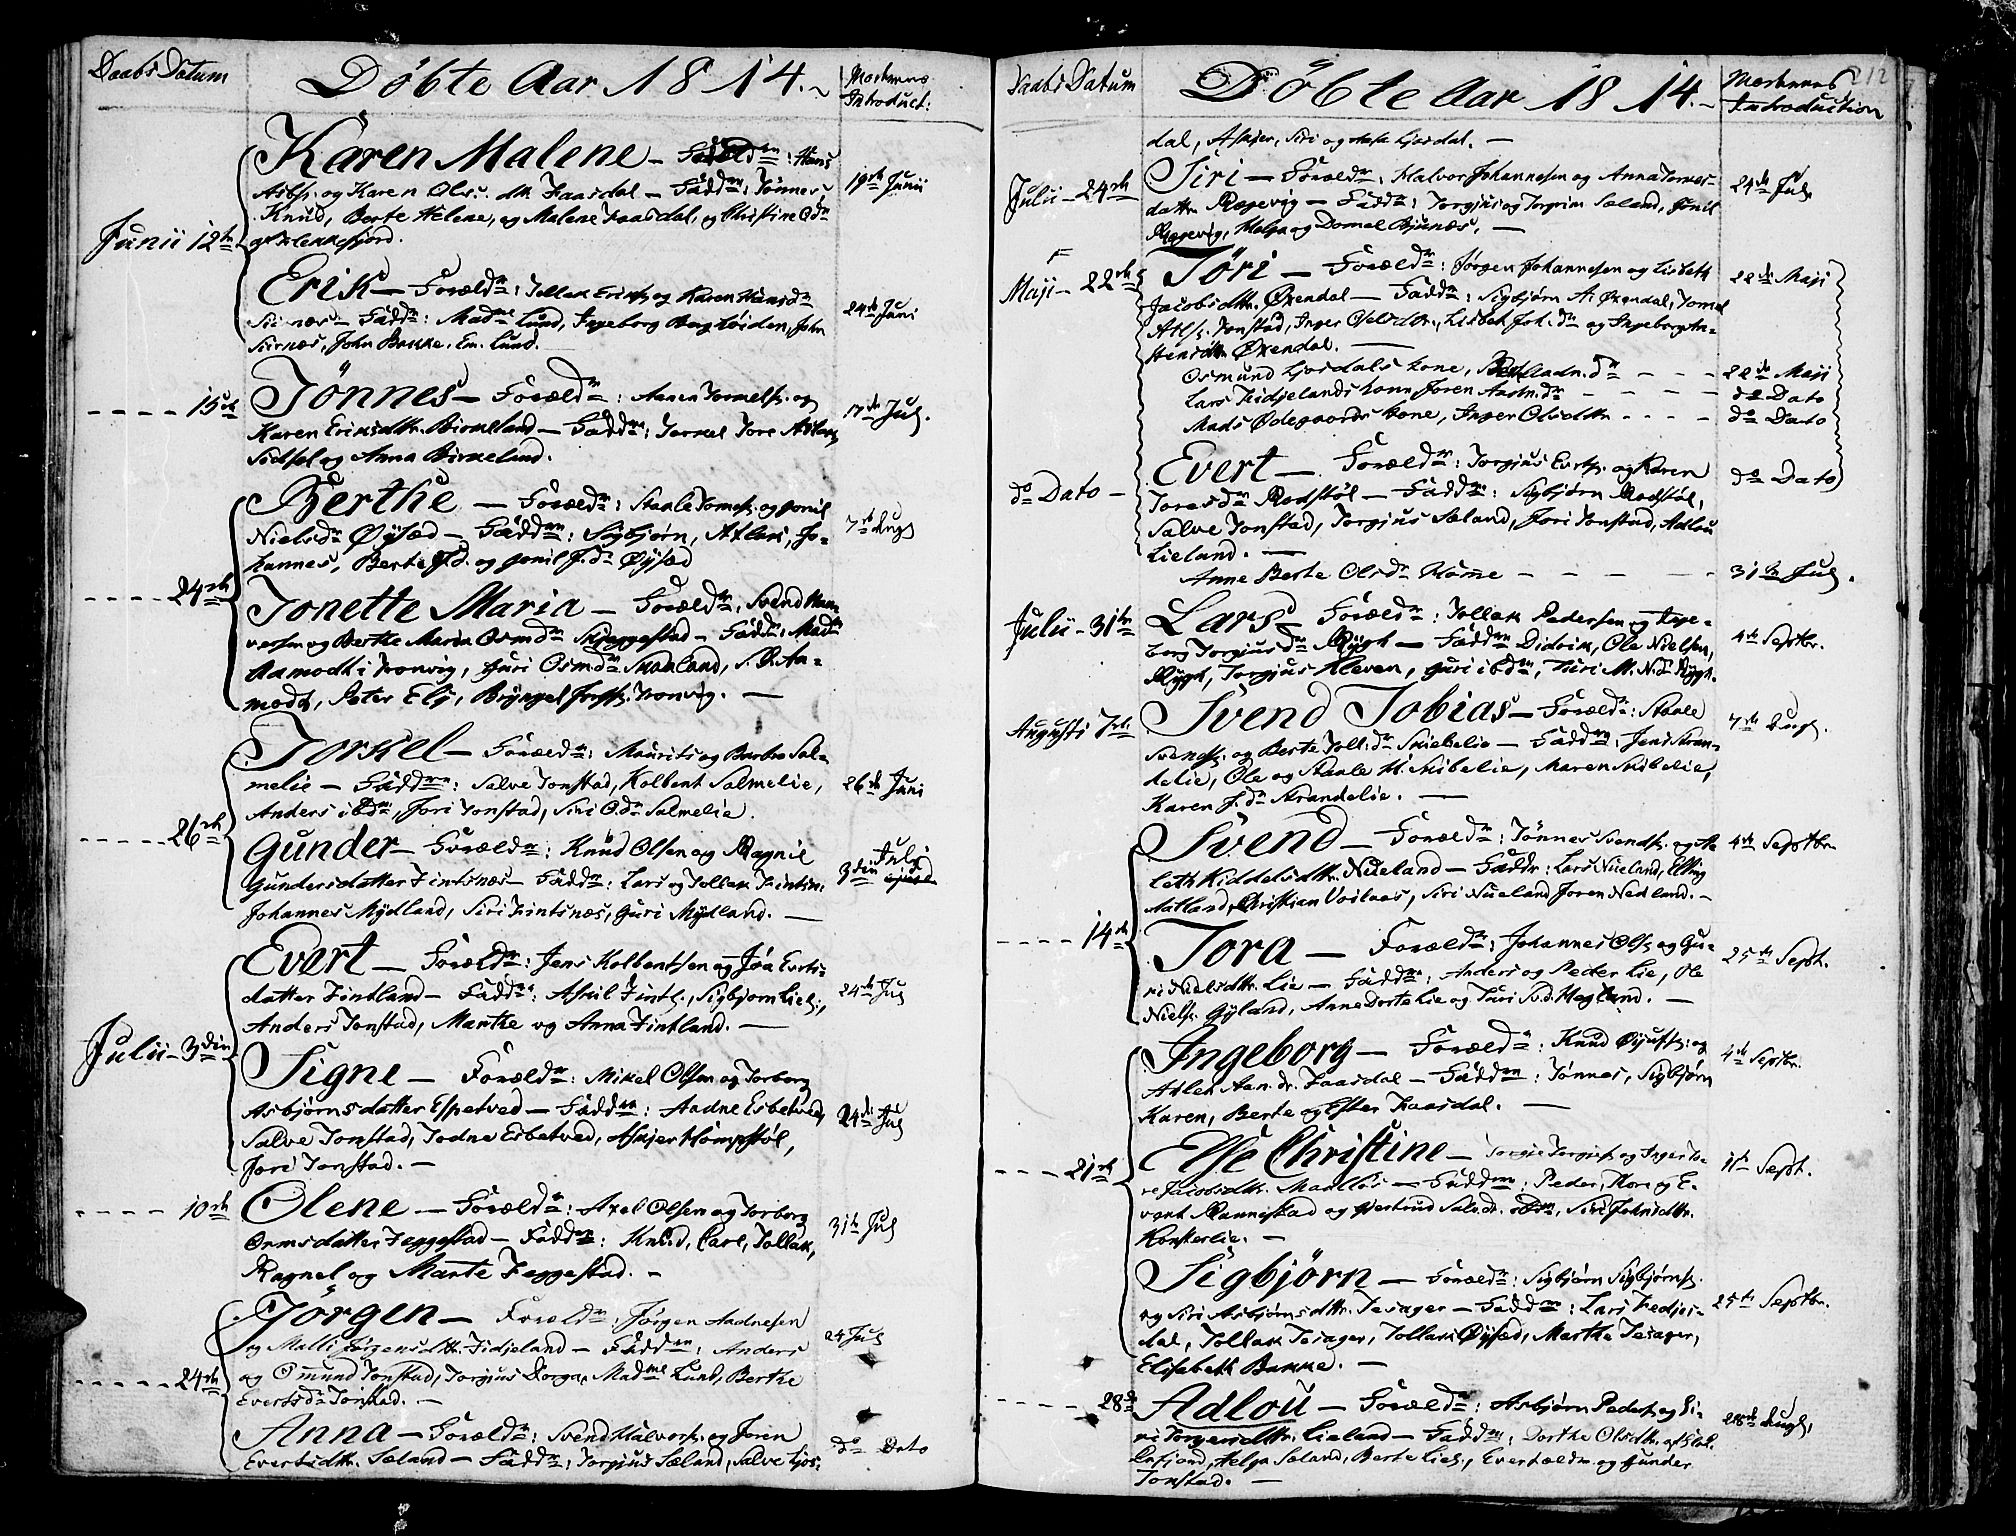 Daabs Datum
Döbte Aar 1814.
Moderens Introduct:
Karen Malene – Foræld^re: Hans
og Karen Ols: dtr Faasdal – Fadd^re: Tönnes
Knud, Berte Helene, og Malene Faasdal, og Christine
Flekkefjord.
Junii 12te
19de Junii
Erik – Foræld^re: Tollak Erichs. og Karen Hansd^r
Sirnæs – Fadd^re: Mad^me Lund, Ingeborg Berghöiden, John
Sirnæs, John Bakke. Em. Lund.
24de Juni
15de
Tönnes – Foræld^re: Aanen Tormels. og
Karen Eriksdtr. Birkeland – Fadd^re: Torkel Tore Adlou
Sidsel og Anna Birkeland.
17de Jul.
24de
Berthe – Foræld^re: Staale Tomes. og Gonil
Nielsd^r Öysæd – Fadd^re: Sigbjörn, Atlak, Jo-
hannes, Berte J.d. og Gonil J.d^r Öysæd
7de Aug
Tonette Maria – Foræld^re: Svend
og Berthe Maria Osmd^r Skjeggestad – Fadd^re: Mad^me
Aamodt i Tronvig, Guri Osmd^r Skanland, S. B. Aa-
modt, Peter Ely, Bryngel Tronvig. –
26de
Torkel – Foræld^re: Maurits og Barbro Sal-
melie – Fadd^re: Salve Tonstad, Kolbent Salmelie,
Anders ibdm, Jori Tonstad, Siri O.d^r Salmelie.
26de Juni
Gunder – Foræld^re: Knud Olsen og Ragnil
Gundersdatter Fintsnæs – Fadd^re: Lars og Tollak Fintsn:
Johannes Mydland, Siri Fintsnæs, Guri Mydland. –
3die Juli
Julii – 3die
Evert – Foræld^re: Jens Kolbentsen og Joa Everts-
datter Fintland – Fadd^re: Askil Fintl., Sigbjorn Liel.,
Anders Tonstad, Marthe og Anna Fintland. –
24de Jul
Signe – Foræld^re: Mikel Olsen og Torborg
Asbjörnsdatter Espetved – Fadd^re: Aadne Esbetved,
Salve Tonstad, Todne Esbetved, Askjer Hompstöl,
Jori Tonstad. –
24de Jul
10de
Olene – Foræld^re: Axel Olsen og Torborg
Ormsdatter Feggestad – Fadd^re: Knud, Carl, Tollak,
Ragnel og Marte Feggestad. –
31te Jul
24de
Jörgen – Foræld^re: Jörgen Aadnesen
og Malli Jörgensdtr. Fidjeland – Fadd^re: Anders
og Omund Tonstad, Torgius Dorga, Mad^me Lund, Berthe
Evertsd^r Tonstad. –
24 Jul
Anna – Foræld^re: Svend Halvors. og Joren
Evertsdtr. Sæland – Fadd^re: Torgius Sæland, Salve Ljos-
do Dato
Daabs Datum
Döbte Aar 1814.
Moderens Introduction
212
dal, Askjer, Siri og Ljosdal. –
Julii – 24de
Siri – Foræld^re: Halvor Johannesen og Anna Tores-
datter Rægevig – Fadd^re: Torgius og Torgrim Sæland, Gunil
Rægevig, Helga og Domel Bjunæs. –
24de Jul
Maji – 22de
Jöri – Foræld^re: Jörgen Johannesen og Lisbeth
Jacobsdtr. Öxendal – Fadd^re: Sigbjörn A. Öxendal, Tormel
Atls. Tonstad, Inger Osuldtr., Lisbet Joh. d^r og Ingeborg An-
stensdtr Öxendal. –
22de Maji
Osmund Ljosdals kone, Aadn. d^r – – –
22de Maji
Lars Fidjelands kone Joren Aadn. d^r –
do Dato
Mads Ödegaards kone, Inger Olsdtr – – –
do Dato
do Dato –
Evert – Foræld^re: Torgius Everts. og Karen
Toresd^r Rodstöl – Fadd^re: Sigbjörn Rodstöl,
Salve Tonstad, Torgjus Sæland, Jori Tonstad, Adlou
Lieland. –
do Dato
Anne Berte Olsd^r Homme – – –
31te Jul.
Julii – 31te
Lars – Foræld^re: Tollak Pedersen og Inge-
borg Torgiusd^r Rygh – Fadd^re Didrik, Ole Nielsen,
Rygh, Torgjus Kleven, Guri ibdm, Turi M. N. d^r Rygh.
4de Septbr.
Augusti 7de
Svend Tobias – Foræld^re: Staale
Svends. og Berte Toll: d^r Skibelie – Fadd^re: Jens Stran-
delie, Ole og Staale H. Skibelie, Maren Skibelie,
Karen J. d^r Strandelie. –
7de Aug.
14de
Svend – Foræld^re: Tönnes Svends. og
leth Kiddelsdtr. Nueland – Faddr: Lars Nueland, Elling
Aatland, Christian Voilaas, Siri Nueland Joren Nedland. –
4de Septbr
Tora – Foræld^re: Johannes Ols. og Gu-
ri Nielsdtr. Lie – Fadd^re: Anders og Peder Lie, Ole
Niels. Gyland, Anne Dorte Lie og Turi Sv.d. Hagland. –
25de Sept.
21de
Ingeborg – Foræld^re: Knud og
Atlen Aan. dr. Faasdal – Fadd^re: Tönnes, Sigbjörn
Karen, Berte og Ester Faasdal. –
4de Septbr.
Else Christine – Torgie Torgies. og Inger To-
re Jacobsdtr. – Fadd^re: Peder, Thore og E-
vert Rannestad og Giertrud Salv. dr. ibdm, Siri Johnsdtr.
Konsterlie. –
11te Sept.
Sigbjörn – Foræld^re: Sigbjörn Sigbjörns.
og Siri Asbjörnsdtr. Tesager – Fadd^re: Lars Fedjes-
dal, Tollak Tesager, Tollak Öysæd, Marthe Tesager,
Elisabeth Bakke. –
25de Septbr.
28de
Adlou – Foræld^re: Asbjörn Peders. og Si-
ri Torgersdtr. Lieland – Fadd^re: Dorthe Olsdtr. af Flek-
kefjord, Helga Sæland, Berte Liel., Evert og Gunder
Tonstad. –
28de Aug.